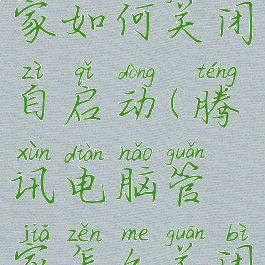 家如何关闭
zì qǐ dòng téng
自启动(腾
xùn diàn nǎo guǎn
讯电脑管
jiā zěn me guān bì
家怎么关闭